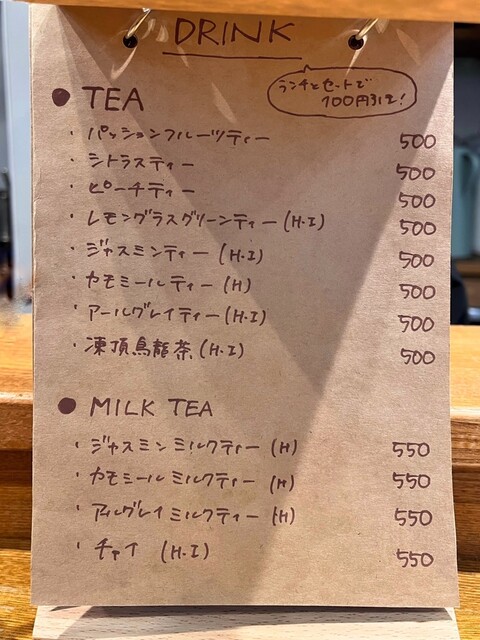 DRINK
ランチとセットで
100円引き!
● TEA
・パッションフルーツティー 500
・シトラスティー 500
・ピーチティー 500
・レモングラスグリーンティー(H・I) 500
・ジャスミンティー(H・I) 500
・カモミールティー(H) 500
・アールグレイティー(H・I) 500
・凍頂烏龍茶(H・I) 500
● MILK TEA
・ジャスミンミルクティー(H) 550
・カモミールミルクティー(H) 550
・アールグレイミルクティー(H) 550
・チャイ (H・I) 550